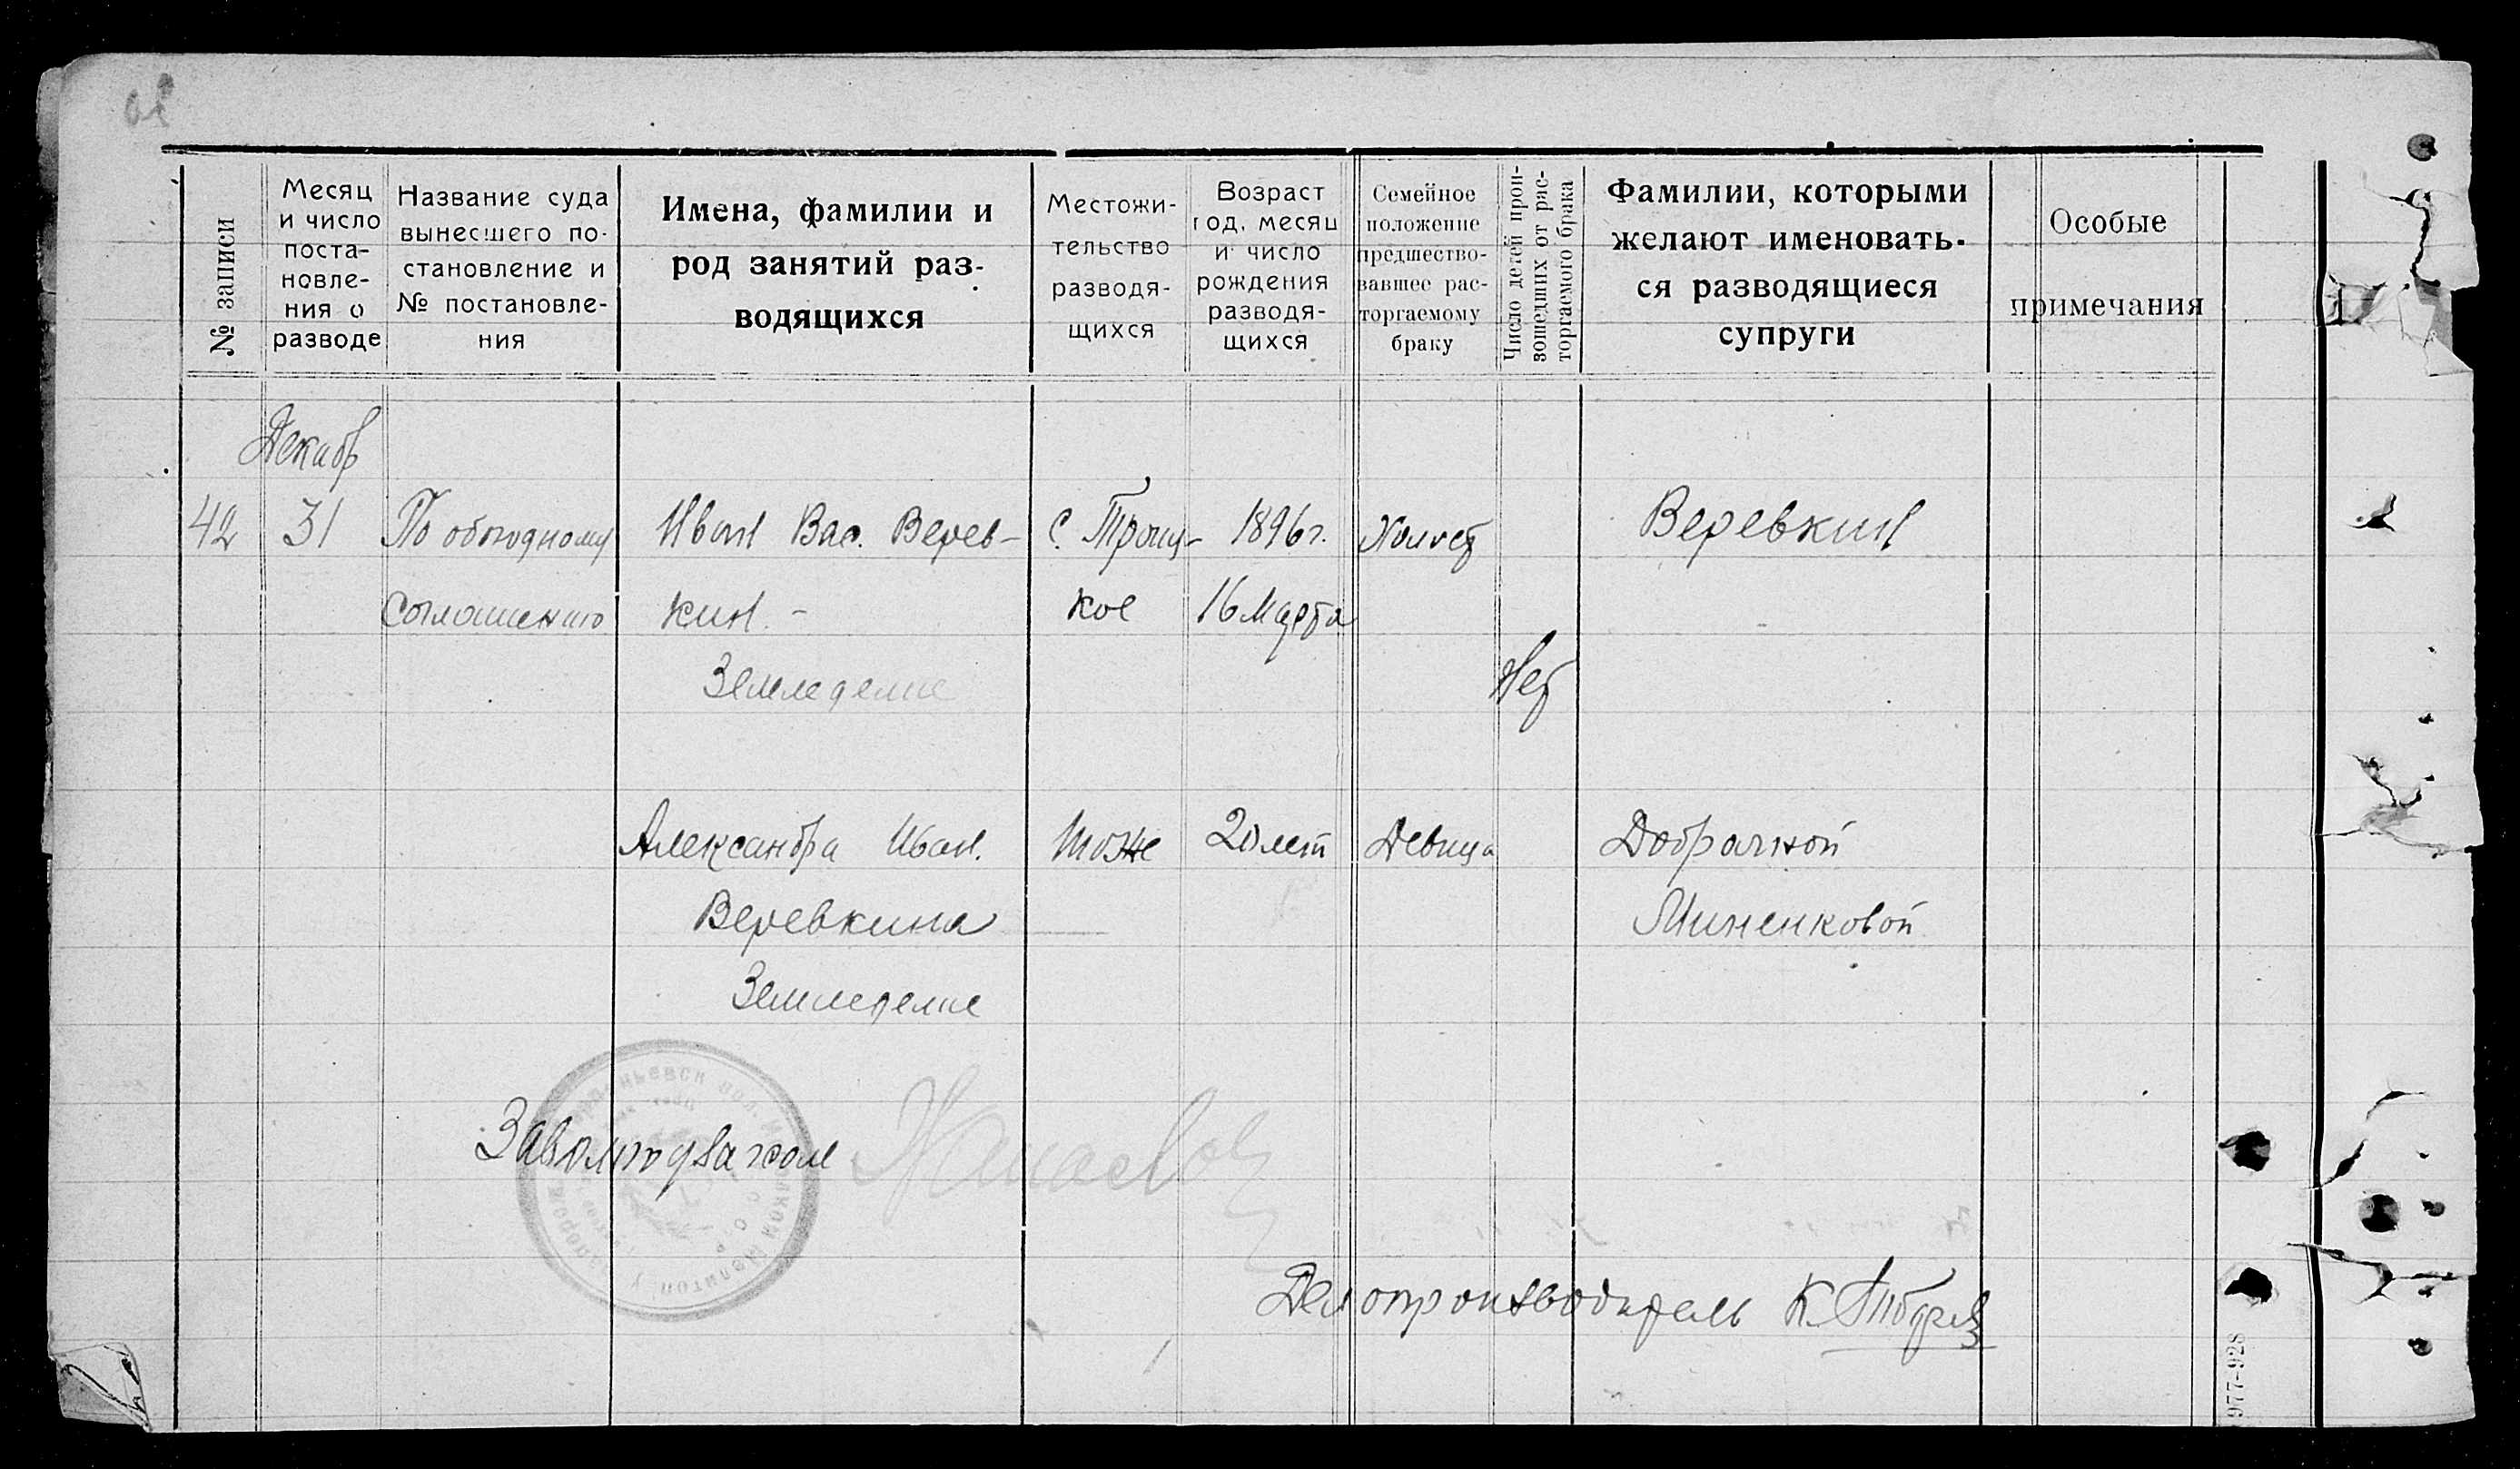 № записи
Месяц
и число
поста-
новле-
ния о
разводе
Название суда
вынесшего по-
становление и
№ постановле-
ния
Имена, фамилии и
род занятий раз-
водящихся
Местожи-
тельство
разводя-
щихся
Возраст
год, месяц
и число
рождения
разводя-
щихся
Семейное
положение
предшество-
вавшее рас-
торгаемому
браку
Число детей прои-
зошедших от рас-
торгаемого брака
Фамилии, которыми
желают именовать-
ся разводящиеся
супруги
Особые
примечания
Декабр
42
31
По обоюдному
соглашению
Иван Вас. Верев-
кин. -
Земледелие
с. Троиц-
кое
1896 г.
16 марта
Холост
Нет
Веревкин
Александра Иван.
Веревкина
Земледелие
тоже
20 лет
Девица
Добрачной
Миненковой
Делопроизводитель К.
977-928